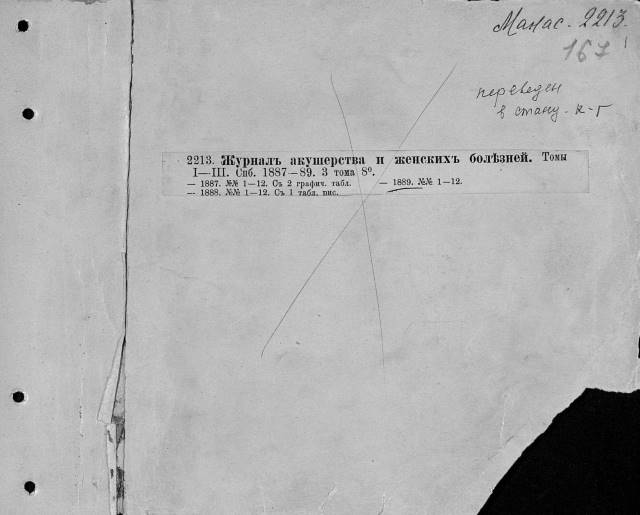 Манас. 2213.
167
переведен
в стану. к-г
2213. Журналъ акушерства и женскихъ болѣзней. Томы
I—III. Спб. 1887—89. 3 тома 8º.
— 1887. №№ 1—12. Съ 2 графич. табл. — 1889. №№ 1—12.
— 1888. №№ 1—12. Съ 1 табл. рис.